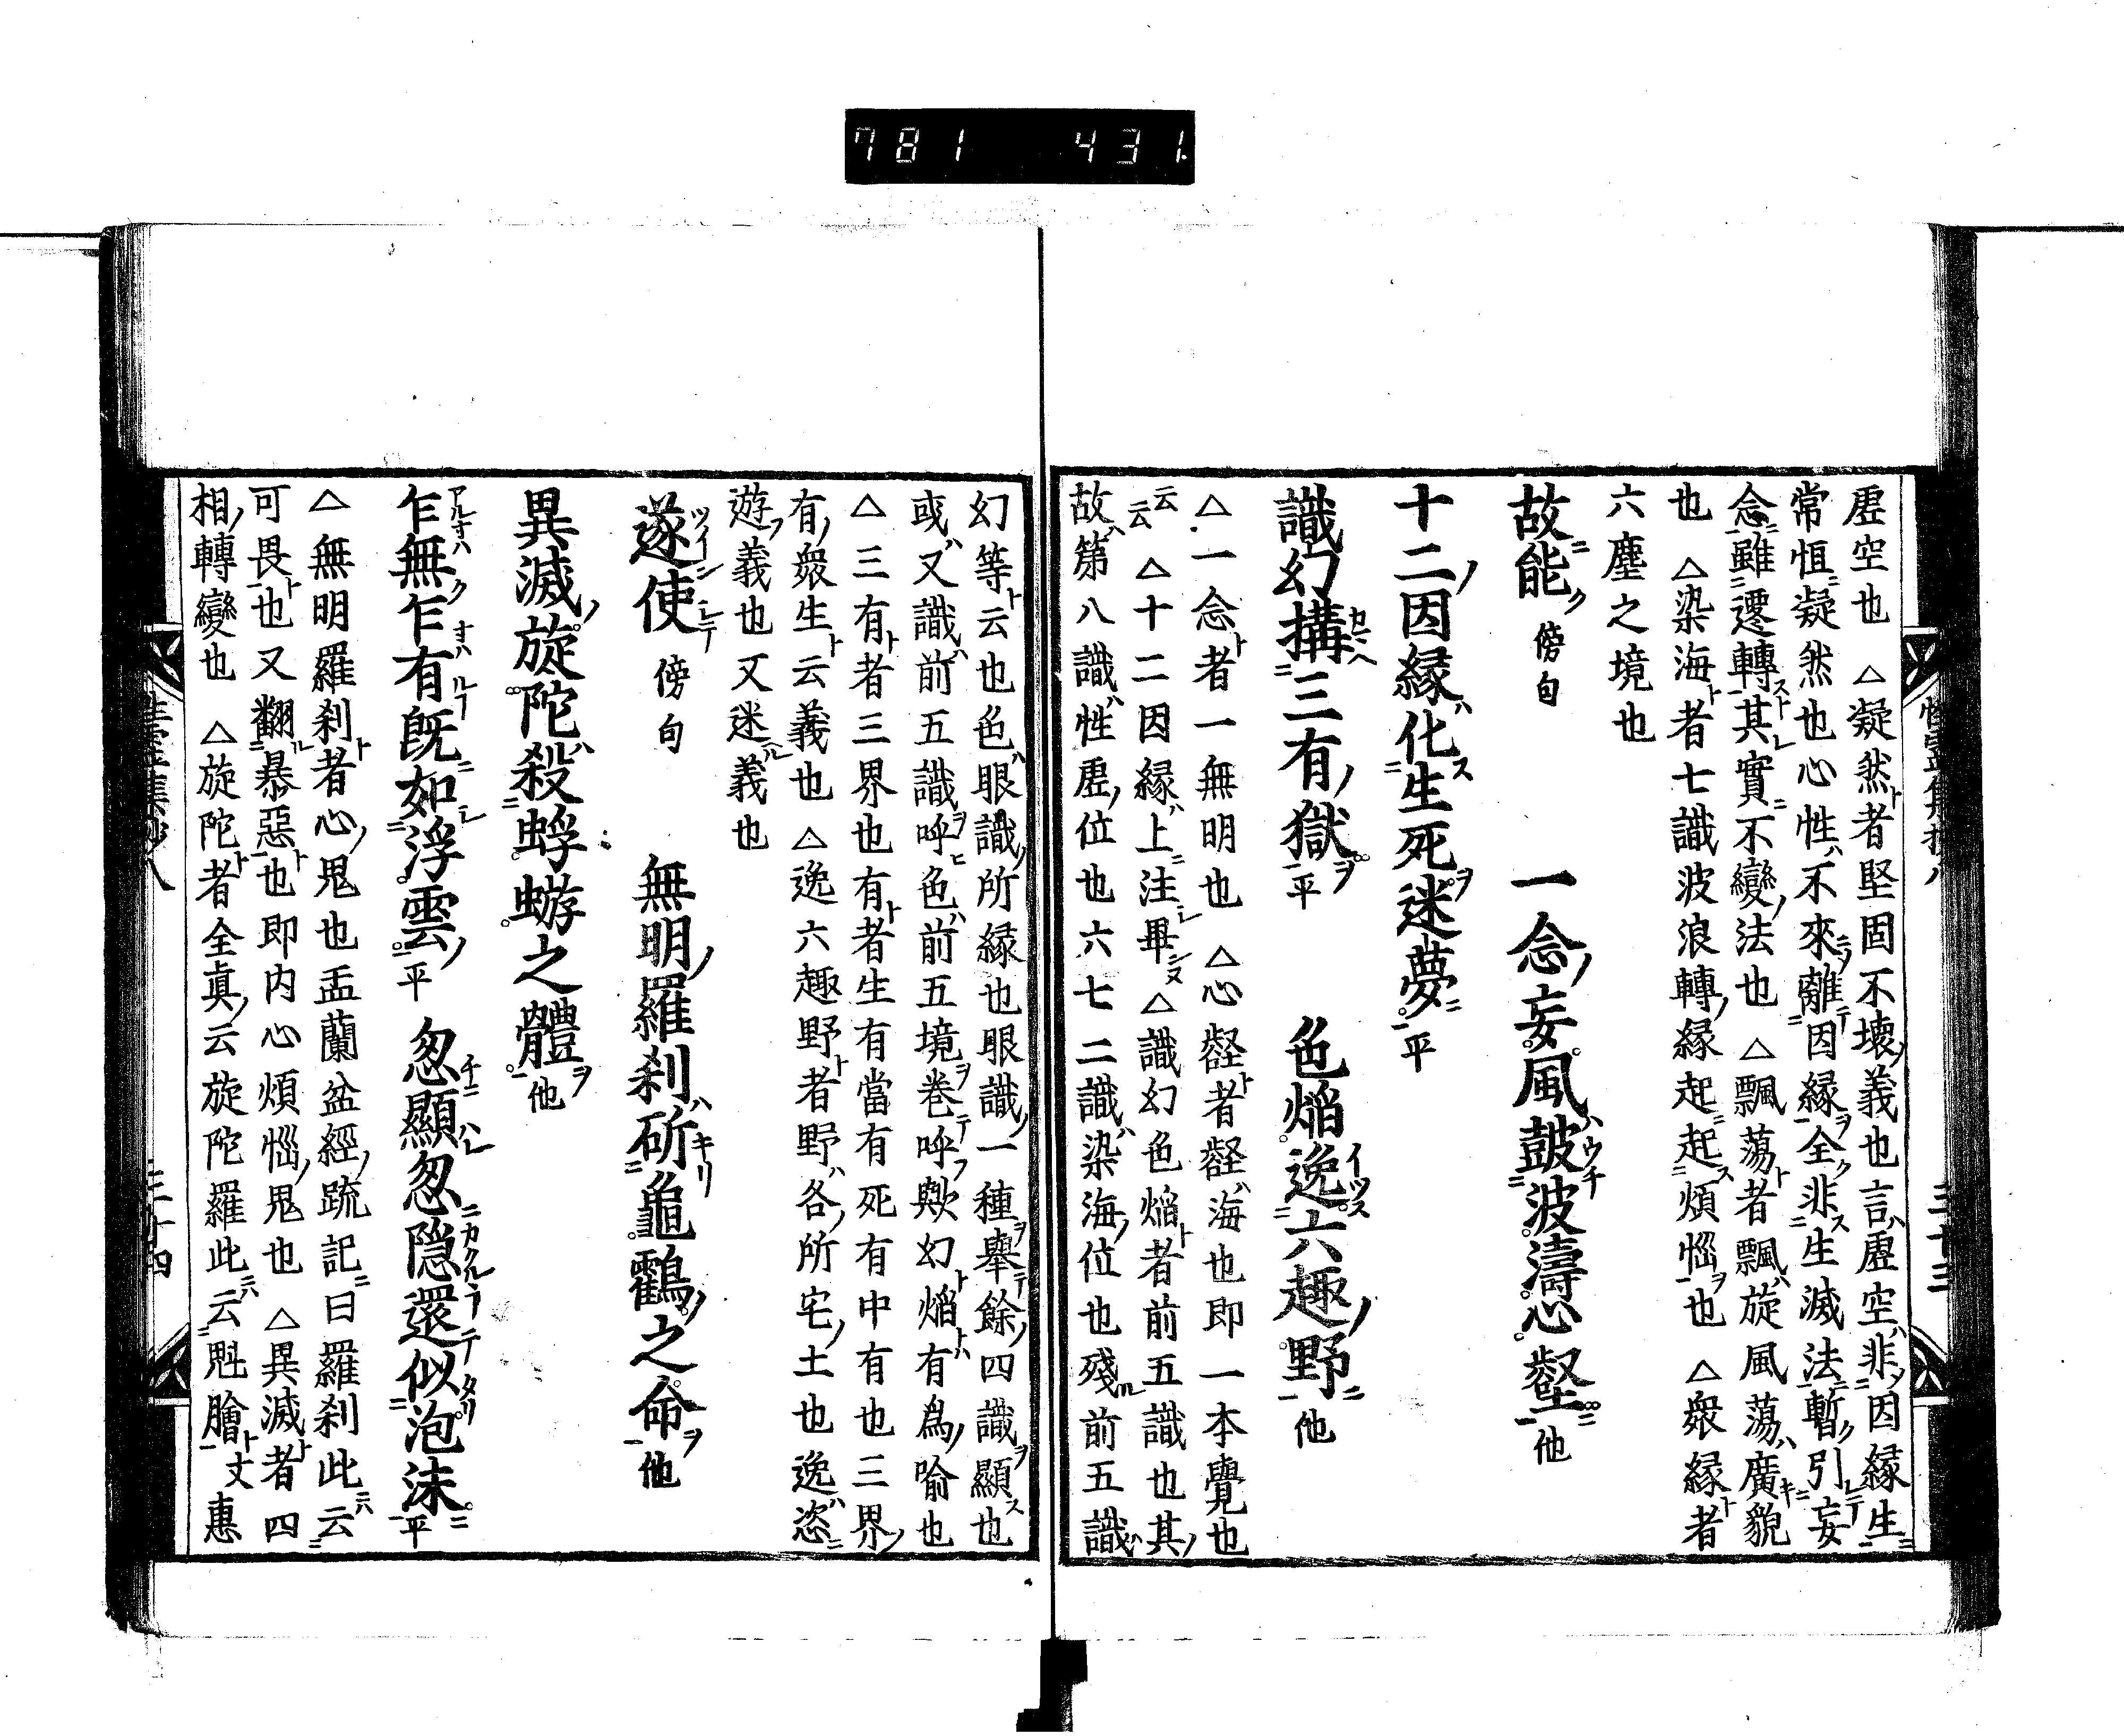 781 431
虚空也 △凝然者堅固不壊義也言虚空非因縁生
常恒凝然也心性不來離因縁全非生滅法暫引妄
念雖遷轉其實不變法也 △飄蕩者飄旋風蕩廣貌
也 △染海者七識波浪轉縁起起煩惱也 △衆縁者
六塵之境也
故能 傍句 一念妄風皷波濤心壑 他
十二因縁化生死迷夢 平
識幻搆三有獄 平 色焔逸六趣野 他
△一念者一無明也 △心壑者壑海也即一本覺也
云云 △十二因縁上注畢 △識幻色焔者前五識也其
故第八識性虚位也六七二識染海位也殘前五識
幻等云也色眼識所縁也眼識一種舉餘四識顯也
或又識前五識呼色前五境巻呼歟幻焔有為喻也
△三有者三界也有者生有當有死有中有也三界
有衆生云義也 △逸六趣野者野各所宅土也逸恣
遊義也又迷義也
遂使 傍句 無明羅刹斫龜鶴之命 他
異滅旋陀殺蜉蝣之體 他
乍無乍有既如浮雲 平 忽顯忽隠還似泡沫 平
△無明羅刹者心鬼也盂蘭盆經疏記曰羅刹此云
可畏也又翻暴惡也即内心煩惱鬼也 △異滅者四
相轉變也 △旋陀者全眞云旋陀羅此云魁膾文 惠
三十三
三十四